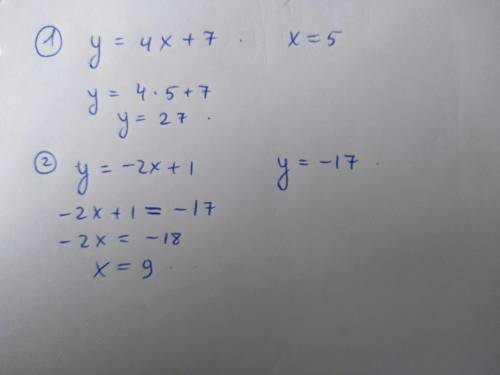 ① y = 4x + 7 . x = 5
y = 4 · 5 + 7
y = 27 .
② y = -2x + 1 y = -17 .
-2x + 1 = -17
-2x = -18
x = 9 .